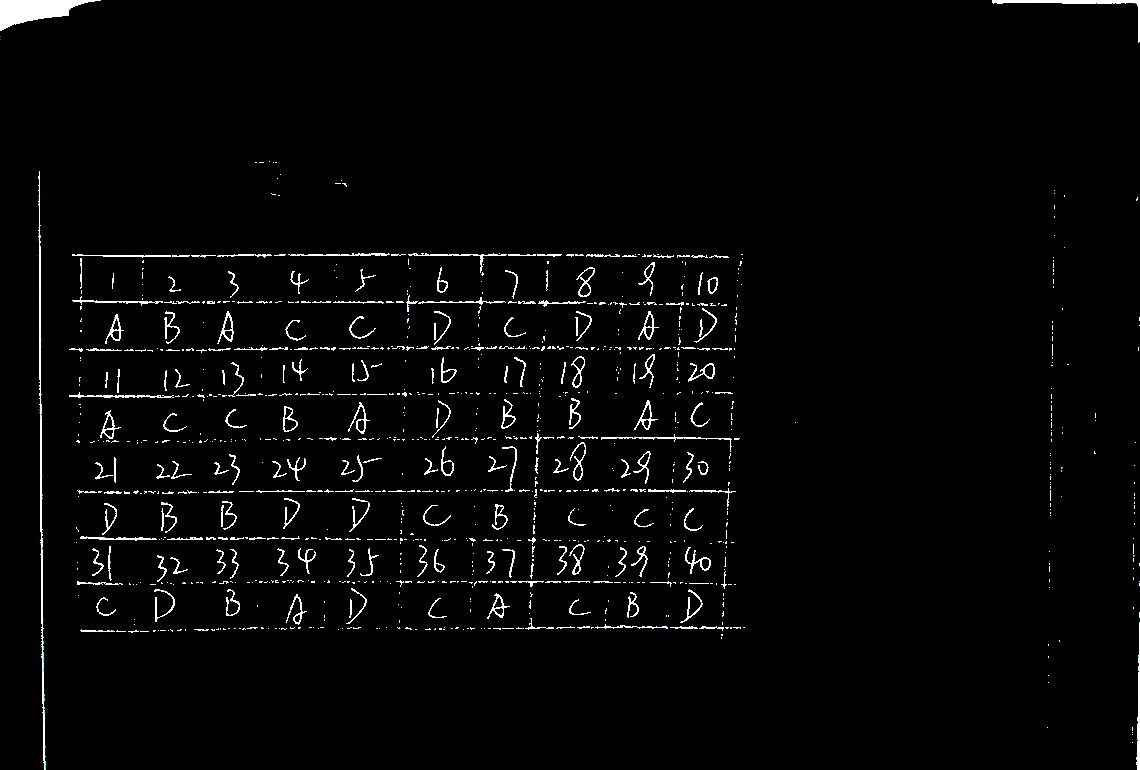 1 2 3 4 5 6 7 8 9 10
A B A C C D C D A D
11 12 13 14 15 16 17 18 19 20
A C C B A D B B A C
21 22 23 24 25 26 27 28 29 30
D B B D D C B C C C
31 32 33 34 35 36 37 38 39 40
C D B A D C A C B D